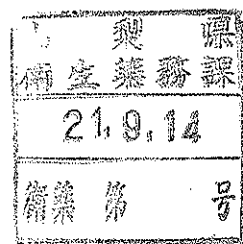 山梨県
衛生薬務課
21.9.14
衛薬第 号